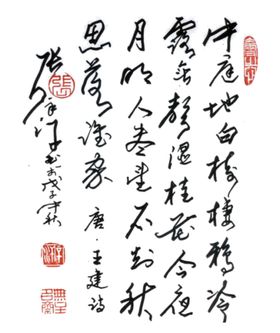 中庭地白树棲鸦冷
露無聲湿桂花今夜
月明人尽望不知秋
思落谁家 唐·王建诗
张 书于戊子中秋